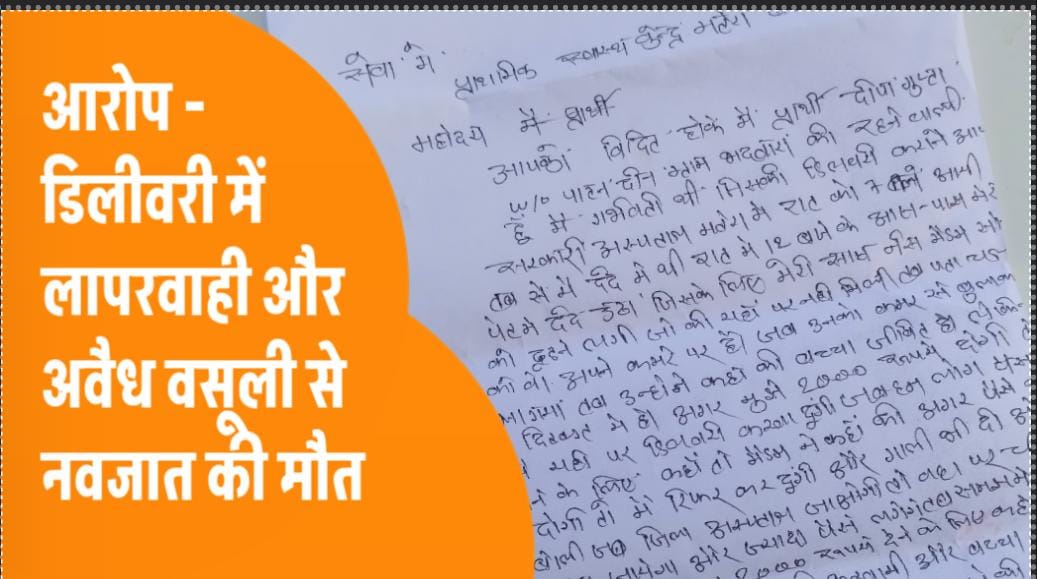 आरोप -
डिलीवरी में
लापरवाही और
अवैध वसूली से
नवजात की मौत
सेवा में
प्राथमिक स्वास्थ केन्द्र
महोदय में प्रार्थी
आपको विदित होके में प्रार्थी
W/o ग्राम की रहने वाली
हूँ में गर्भवती थी जिसकी डिलवरी कराने
सरकारी अस्पताल में रात को 7 बजे आयी
तब से में दर्द में थी रात में 12 बजे के आस-पास मेरे
पेट में दर्द उठा जिसके लिए मेरी सास नर्स मैडम को
को ढूढ़ने लगी जो की यहाँ पर नही मिली तब पता चला
की वो अपने कमरे पर है। जब उनको कमरे से बुलाकर
तब उन्होंने कहाँ की बच्चा जीवित है
दिक्कत में है। अगर मुझे 2000 रूपये दोगी
यही पर डिलवरी करवा दुंगी जब हम लोग पैसे
के लिए कहाँ तो मैडम ने कहाँ की अगर पैसे
दोगी तो में रिफर कर दुंगी और गाली भी दी
बोली जब जिला अस्पताल जाओगी तो वहा पर
और ज्यादा पैसे लगेगे
2000 रूपये देने के लिए
और बच्चा